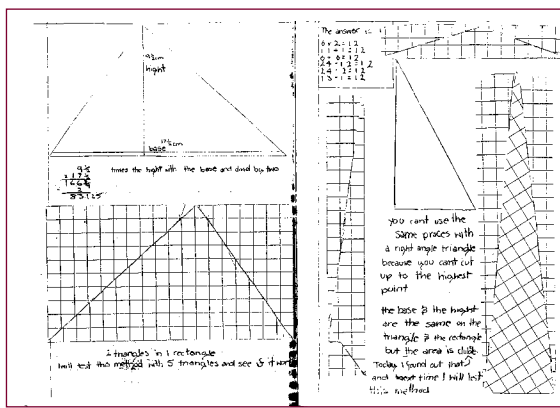 9½cm
hight
17½cm
base
9½
times the hight with the base and divid by two
17½
166¼
2
83.125
2 triangles in 1 rectangle
I will test this method with 5 triangles and see if it works
The answer is
6 x 2 = 12
11 + 1 = 12
6 + 6 = 12
24 - 12 = 12
24 ÷ 2 = 12
13 - 1 = 12
you cant use the
same process with
a right angle triangle
because you cant cut
up to the highest
point
the base & the hight
are the same on the
triangle & the rectangle
but the area is
Today I found out that
and next time I will test
this method